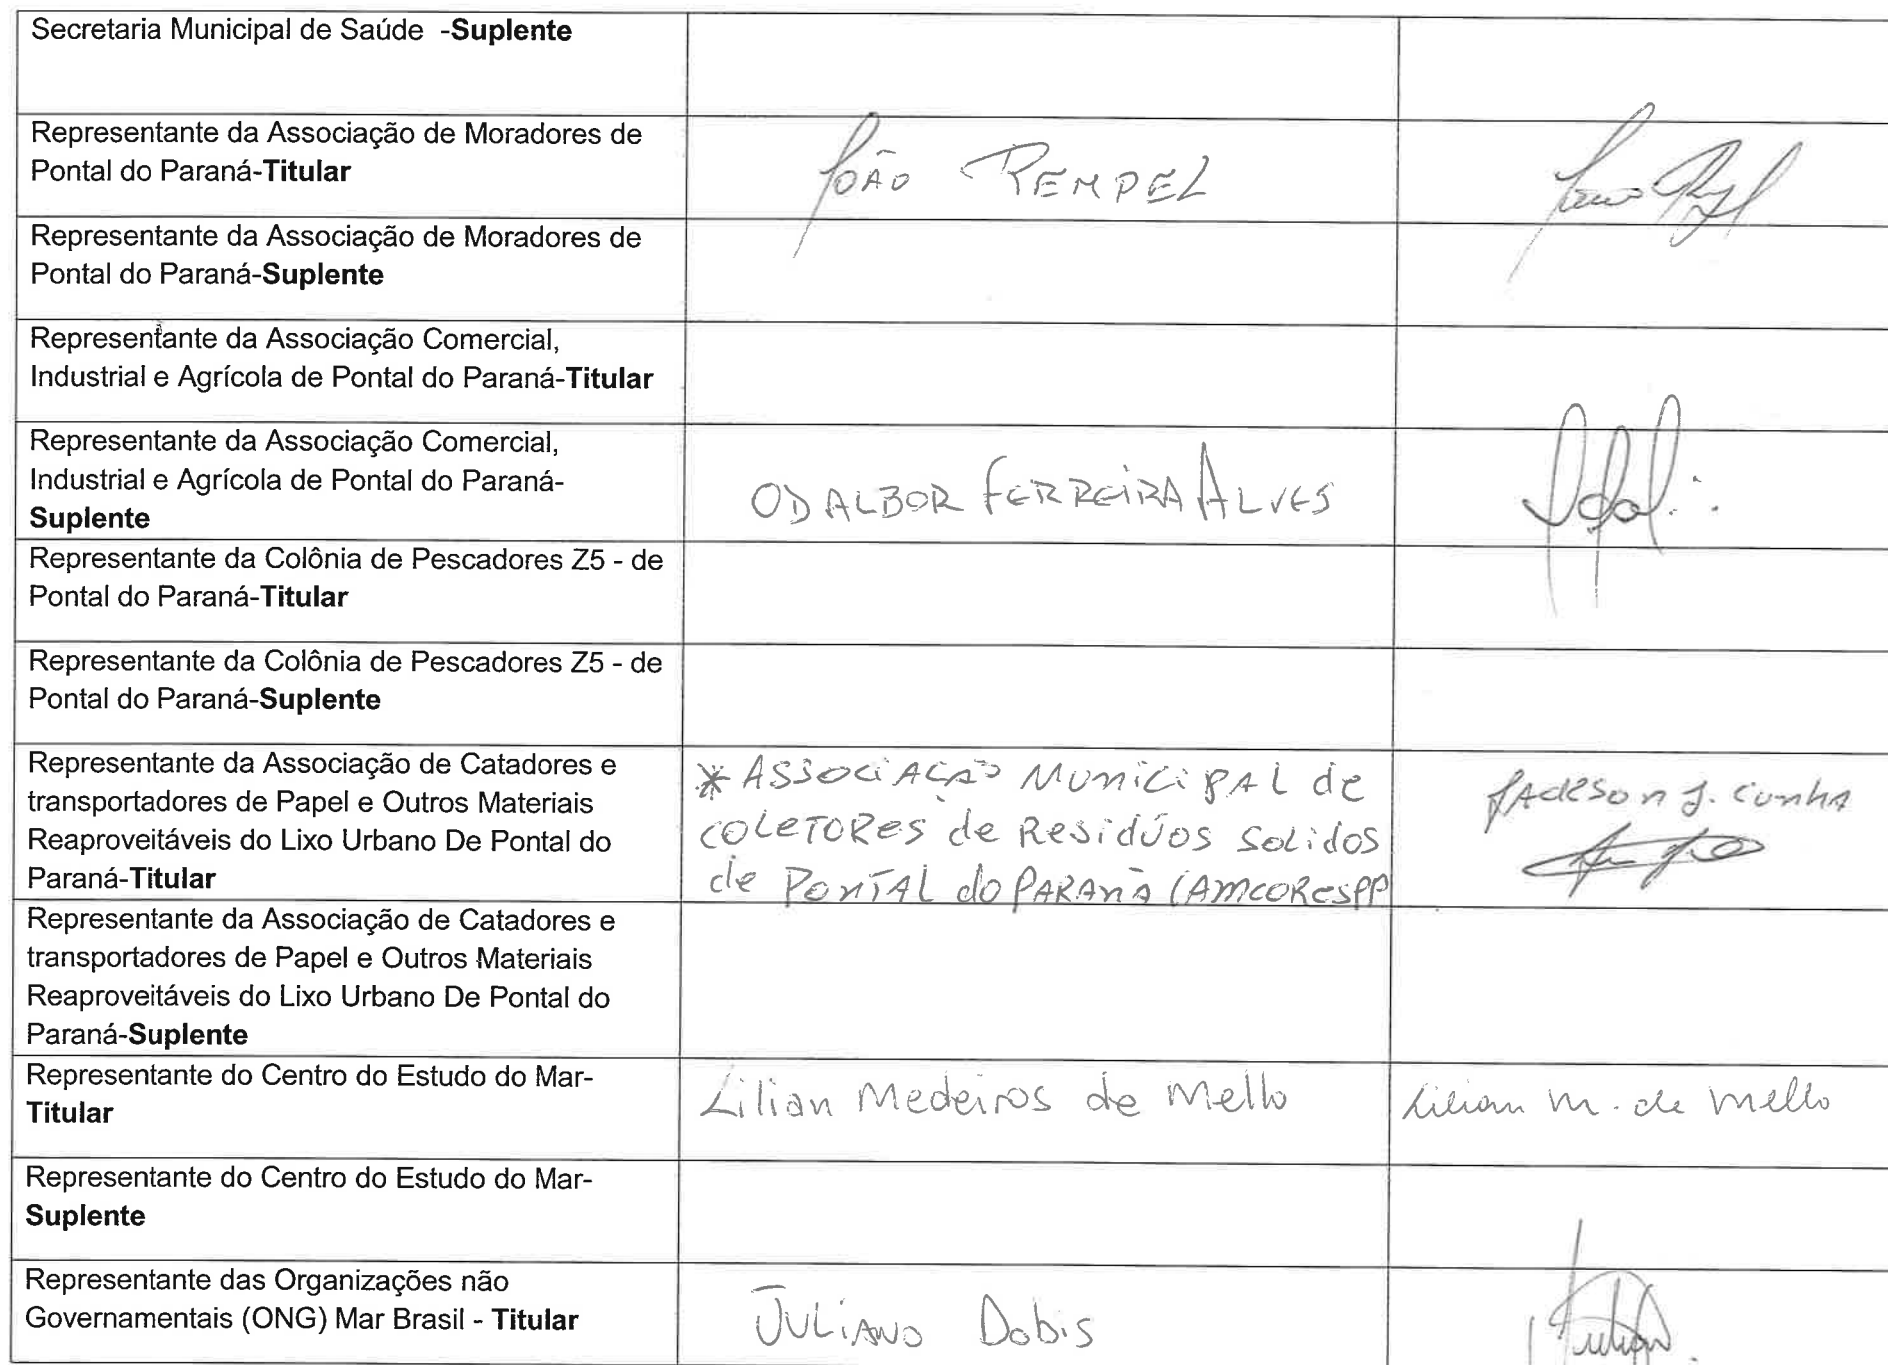 Secretaria Municipal de Saúde -Suplente
Representante da Associação de Moradores de
Pontal do Paraná-Titular
JOÃO REMPEL
Representante da Associação de Moradores de
Pontal do Paraná-Suplente
Representante da Associação Comercial,
Industrial e Agrícola de Pontal do Paraná-Titular
Representante da Associação Comercial,
Industrial e Agrícola de Pontal do Paraná-
Suplente
ODALBOR FERREIRA ALVES
Representante da Colônia de Pescadores Z5 - de
Pontal do Paraná-Titular
Representante da Colônia de Pescadores Z5 - de
Pontal do Paraná-Suplente
Representante da Associação de Catadores e
transportadores de Papel e Outros Materiais
Reaproveitáveis do Lixo Urbano De Pontal do
Paraná-Titular
* ASSOCIAÇÃO MUNICIPAL de
COLETORES de ResidÚos SOLIDOS
de PONTAL do PARANÀ (AMCORESPP
JACKSON J. CUNHA
Representante da Associação de Catadores e
transportadores de Papel e Outros Materiais
Reaproveitáveis do Lixo Urbano De Pontal do
Paraná-Suplente
Representante do Centro do Estudo do Mar-
Titular
Lilian Medeiros de Mello
Lilian M. de Mello
Representante do Centro do Estudo do Mar-
Suplente
Representante das Organizações não
Governamentais (ONG) Mar Brasil - Titular
JULIANO Dobis